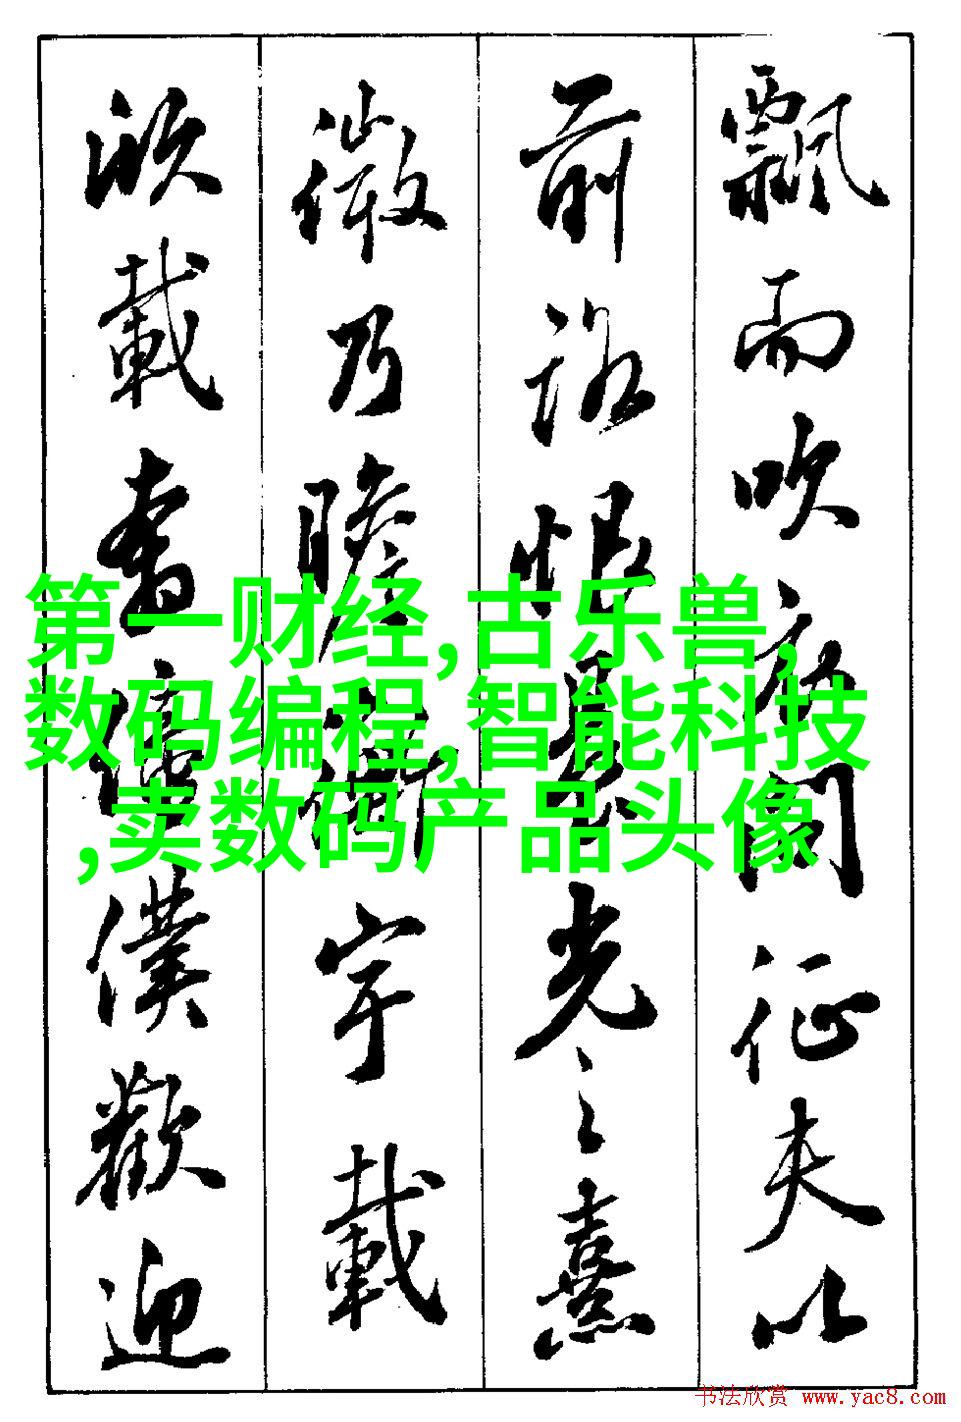 飄而吹衣問征夫以
前路恨晨光之熹
微乃瞻衡宇載
欣載奔僮僕歡迎
第一财经,古乐兽,
数码编程,智能科技
,卖数码产品头像
书法欣赏 www.yac8.com